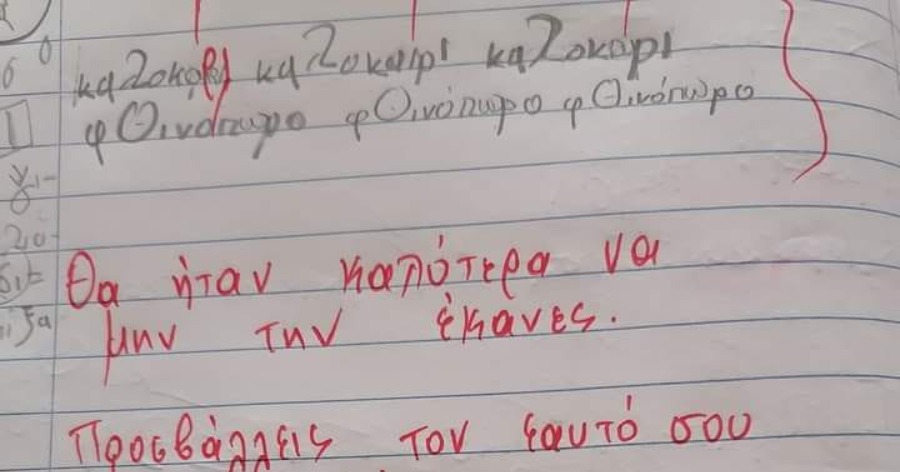 καλοκαίρι καλοκαίρι καλοκάρι
φθινόπωρο φθινόπωρο φθινόπωρο
Θα ήταν καλύτερα να
μην την έκανες.
Προσβάλλεις τον εαυτό σου